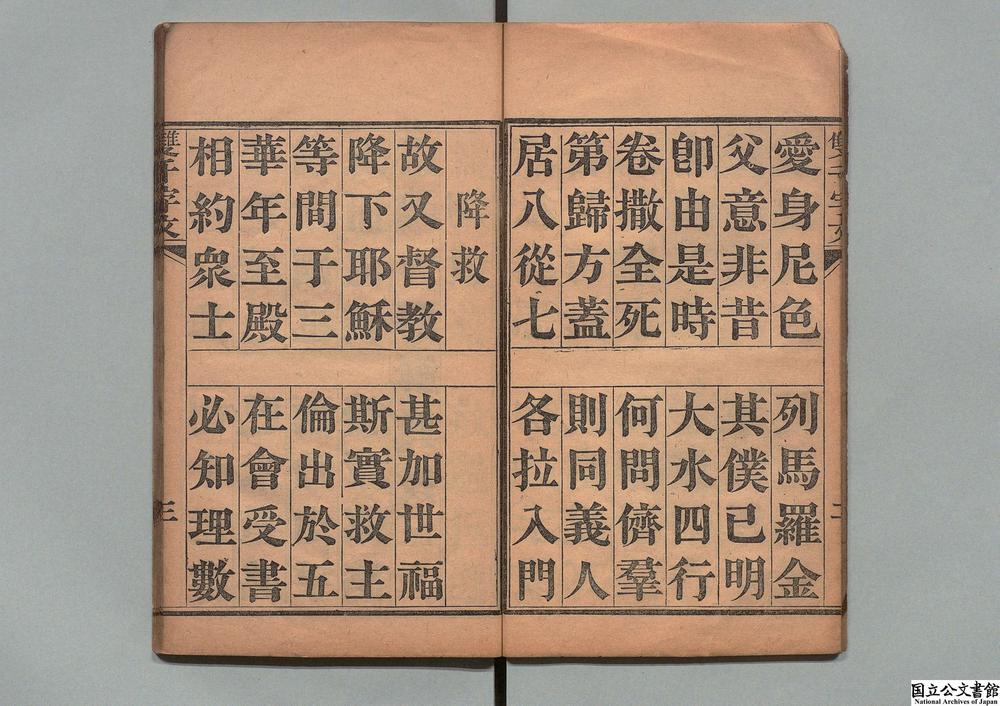 雙千字文 二
愛身尼色 列馬羅金
父意非昔 其僕已明
卽由是時 大水四行
卷撒全死 何問儕羣
第歸方蓋 則同義人
居八從七 各拉入門
降救
故又督教 甚加世福
降下耶穌 斯實救主
等間于三 倫出於五
華年至殿 在會受書
相約衆士 必知理數
雙千字文 三
国立公文書館
National Archives of Japan